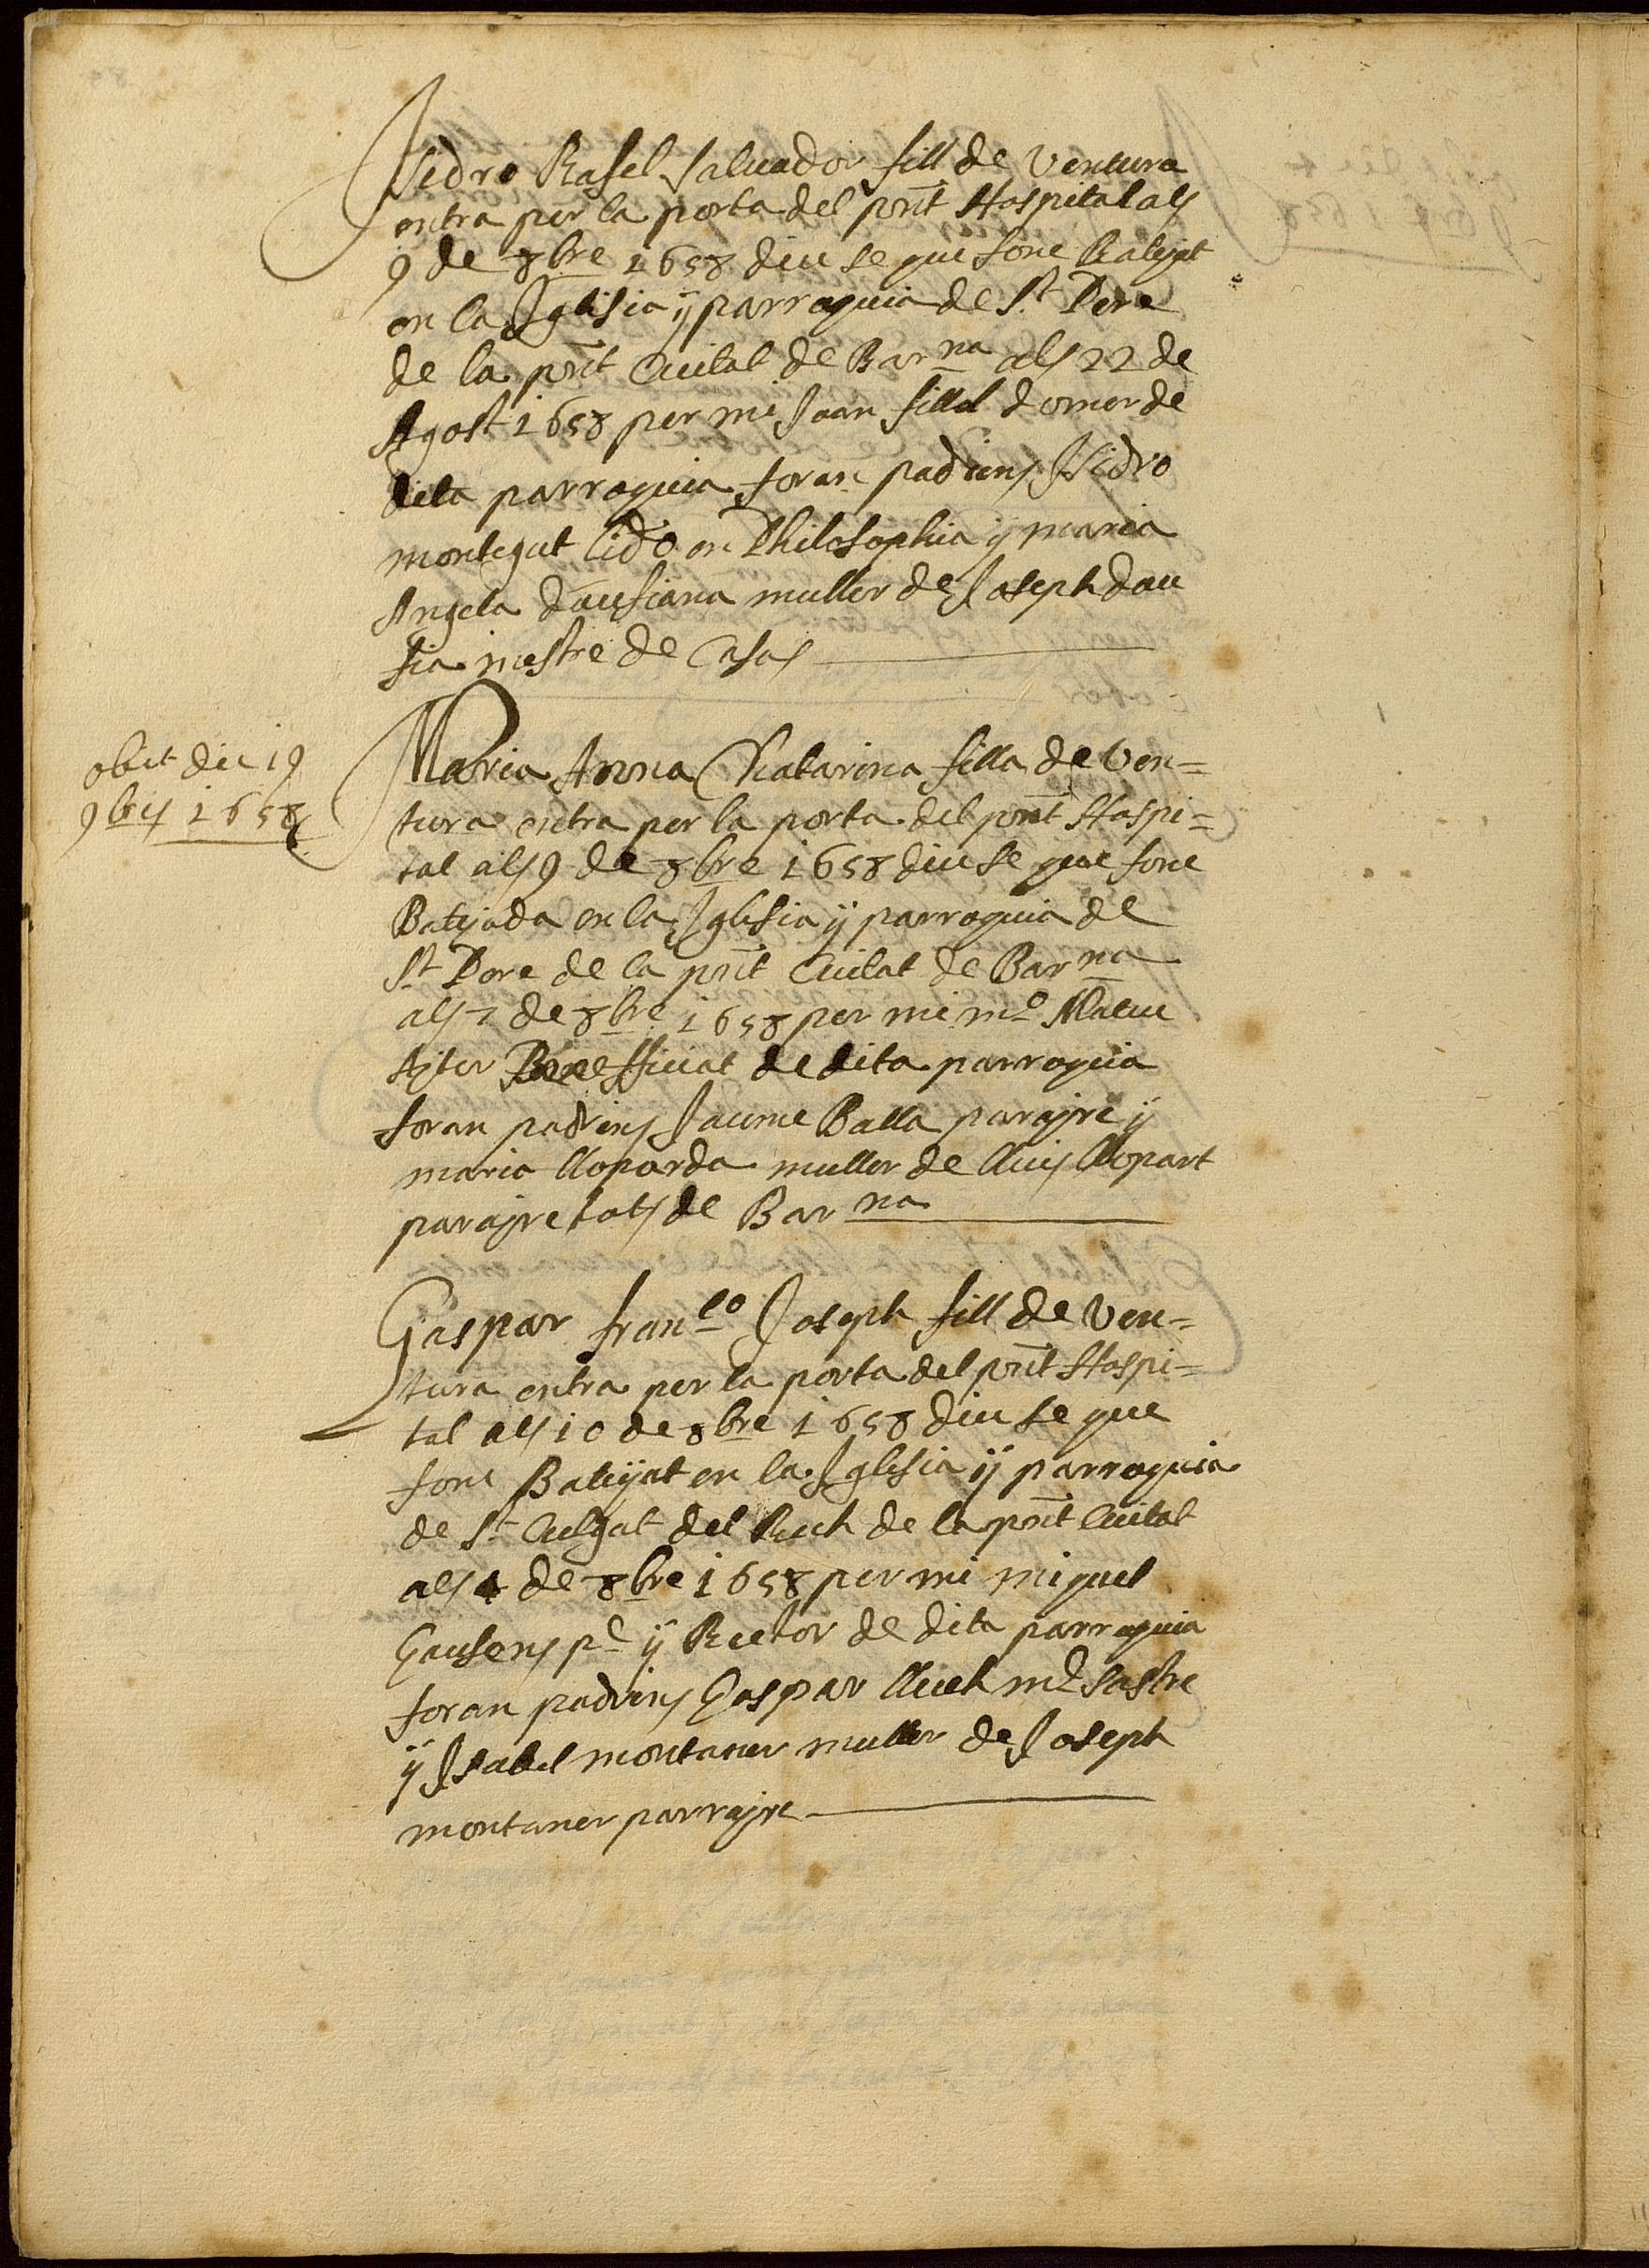 Isidro Rafel Saluador fill de Ventura
entra per la porta del pnt Hospital als
9 de 8bre 1658 diu se que fonc Batejat
en la Iglisia ÿ parroquia de St Pere
de la pnt Ciutat de Barna als 22 de
Agost 1658 per mi Joan fillol domer de
dita parroquia foran padrins Isidro
montegut lido en Philosophia ÿ maria
Angela dausiana muller de Joseph dau
sia mestre de Casas
obit die 19
9bris 1658
Maria Anna Chatarina filla de Ven=
tura entra per la porta del pnt Hospi=
tal als 9 de 8bre 1658 diu se que fonc
Batejada en la Iglesia ÿ parroquia de
St Pere de la pnt Ciutat de Barna
als 7 de 8bre 1658 per mi mo Mateu
Benefficiat de dita parroquia
foran padrins Jaume Balla parajre ÿ
maria lloparda muller de lluis llopart
parajre tots de Barna
Gaspar franco Joseph fill de Ven=
tura entra per la porta del pnt Hospi=
tal als 10 de 8bre 1658 diu se que
fonc Batejat en la Iglesia ÿ parroquia
de St Culgat del Rech de la pnt Ciutat
als 4 de 8bre 1658 per mi miquel
Gausens pe ÿ Rector de dita parroquia
foran padrins Gaspar lluch me sastre
ÿ Isabel montaner muller de Joseph
montaner parrajre